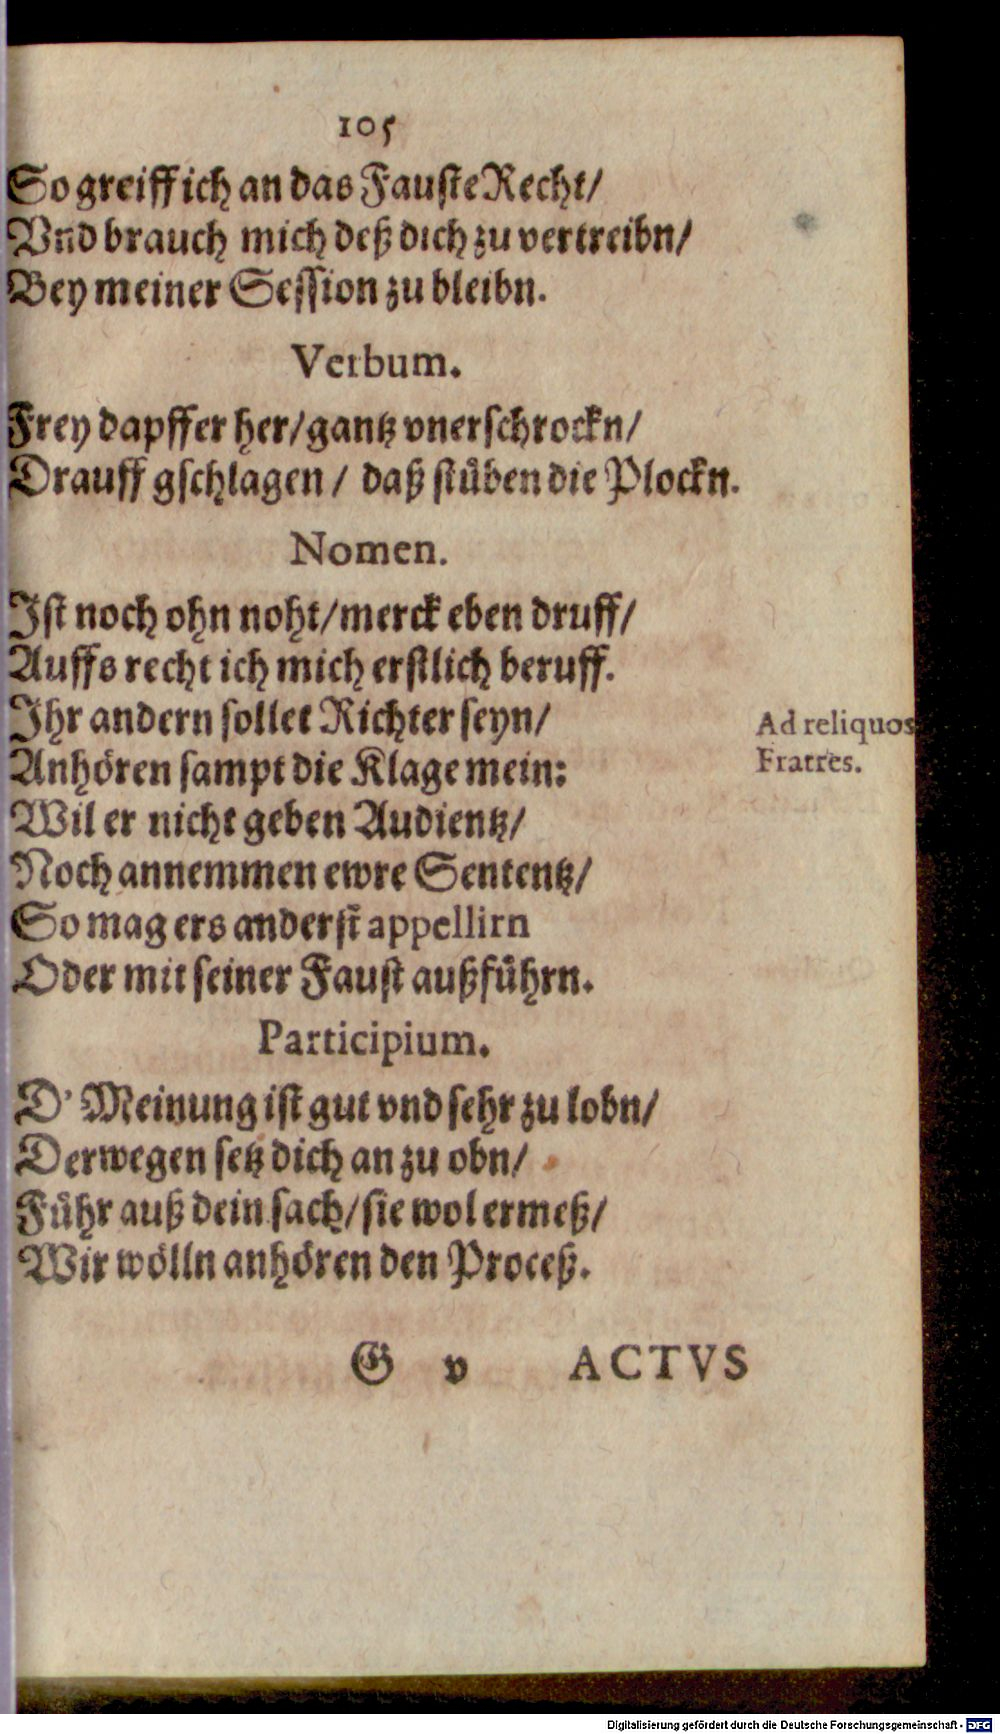 105
So greiff ich an das Fauste Recht/
Vñd brauch mich deß dich zu vertreibn/
Bey meiner Session zu bleibn.
Verbum.
Frey dapffer her/gantz vnerschrockn/
Drauff gschlagen/ daß stüben die Plockn.
Nomen.
Ist noch ohn noht/merck eben druff/
Auffs recht ich mich erstlich beruff.
Ihr andern sollet Richter seyn/
Ad reliquos
Anhören sampt die Klage mein:
Fratres.
Wil er nicht geben Audientz/
Noch annemmen ewre Sententz/
So mag ers anderst appellirn
Oder mit seiner Faust außführn.
Participium.
D' Meinung ist gut vnd sehr zu lobn/
Derwegen setz dich an zu obn/
Führ auß dein sach/sie wol ermeß/
Wir wölln anhören den Proceß.
G v ACTVS
Digitalisierung gefördert durch die Deutsche Forschungsgemeinschaft - DFG